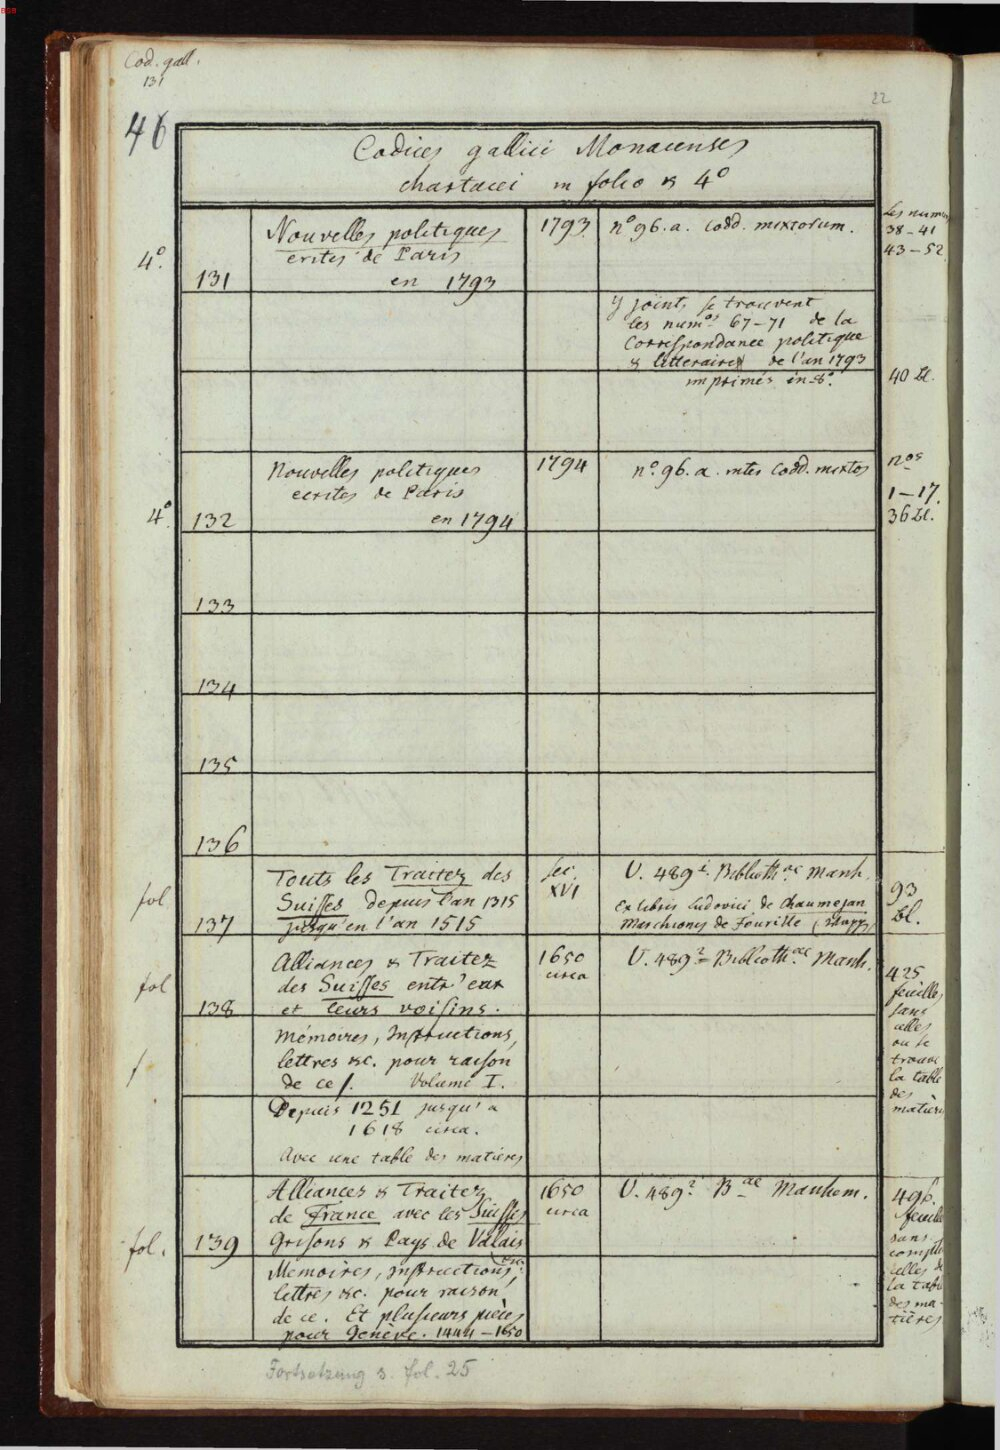 BSB
Cod. gall.
131
22
46
Codices gallici Monacenses
chartacei in folio & 4°
4°.
131
Nouvelles politiques
ecrites de Paris
en 1793
1793
n° 96. a. Codd. mixtorum.
Les num
38-41
43-52
y joints se trouvent
les numos 67-71 de la
Correspondance politique
& litteraire de l'an 1793
imprimés in 8°.
40 bl.
4°.
132
Nouvelles politiques
ecrites de Paris
en 1794
1794
n° 96. a. inter Codd. mixtos
nos
1-17.
36 bl.
133
134
135
136
fol
137
Touts les Traitez des
Suisses depuis l'an 1315
jusqu'en l'an 1515
sec.
XVI
V. 489 Biblioth.ae Manh.
Ex libris Ludovici de Chaumejan
Marchionis de Fourille
93
bl.
fol
138
Alliances & Traitez
des Suisses entr' eux
et leurs voisins.
1650
circa
V. 489 Biblioth.ae Manh.
425
feuilles
sans
celles
ou se
trouve
la table
des
matières
f
Mémoires, Instructions,
lettres &c. pour raison
de ce /. Volume I.
Depuis 1251 jusqu'a
1618 circa.
Avec une table des matieres
fol.
139
Alliances & Traitez
de France avec les Suisses
Grisons & Pays de Valais
1650
circa
V. 489 Bae Manhem.
496.
feuill
sans
compt
celles de
la table
des ma-
tières
Memoires, Instructions,
lettres &c. pour raison
de ce. Et plusieurs pièces
pour Genève. 1444-1650
Fortsetzung s. fol. 25